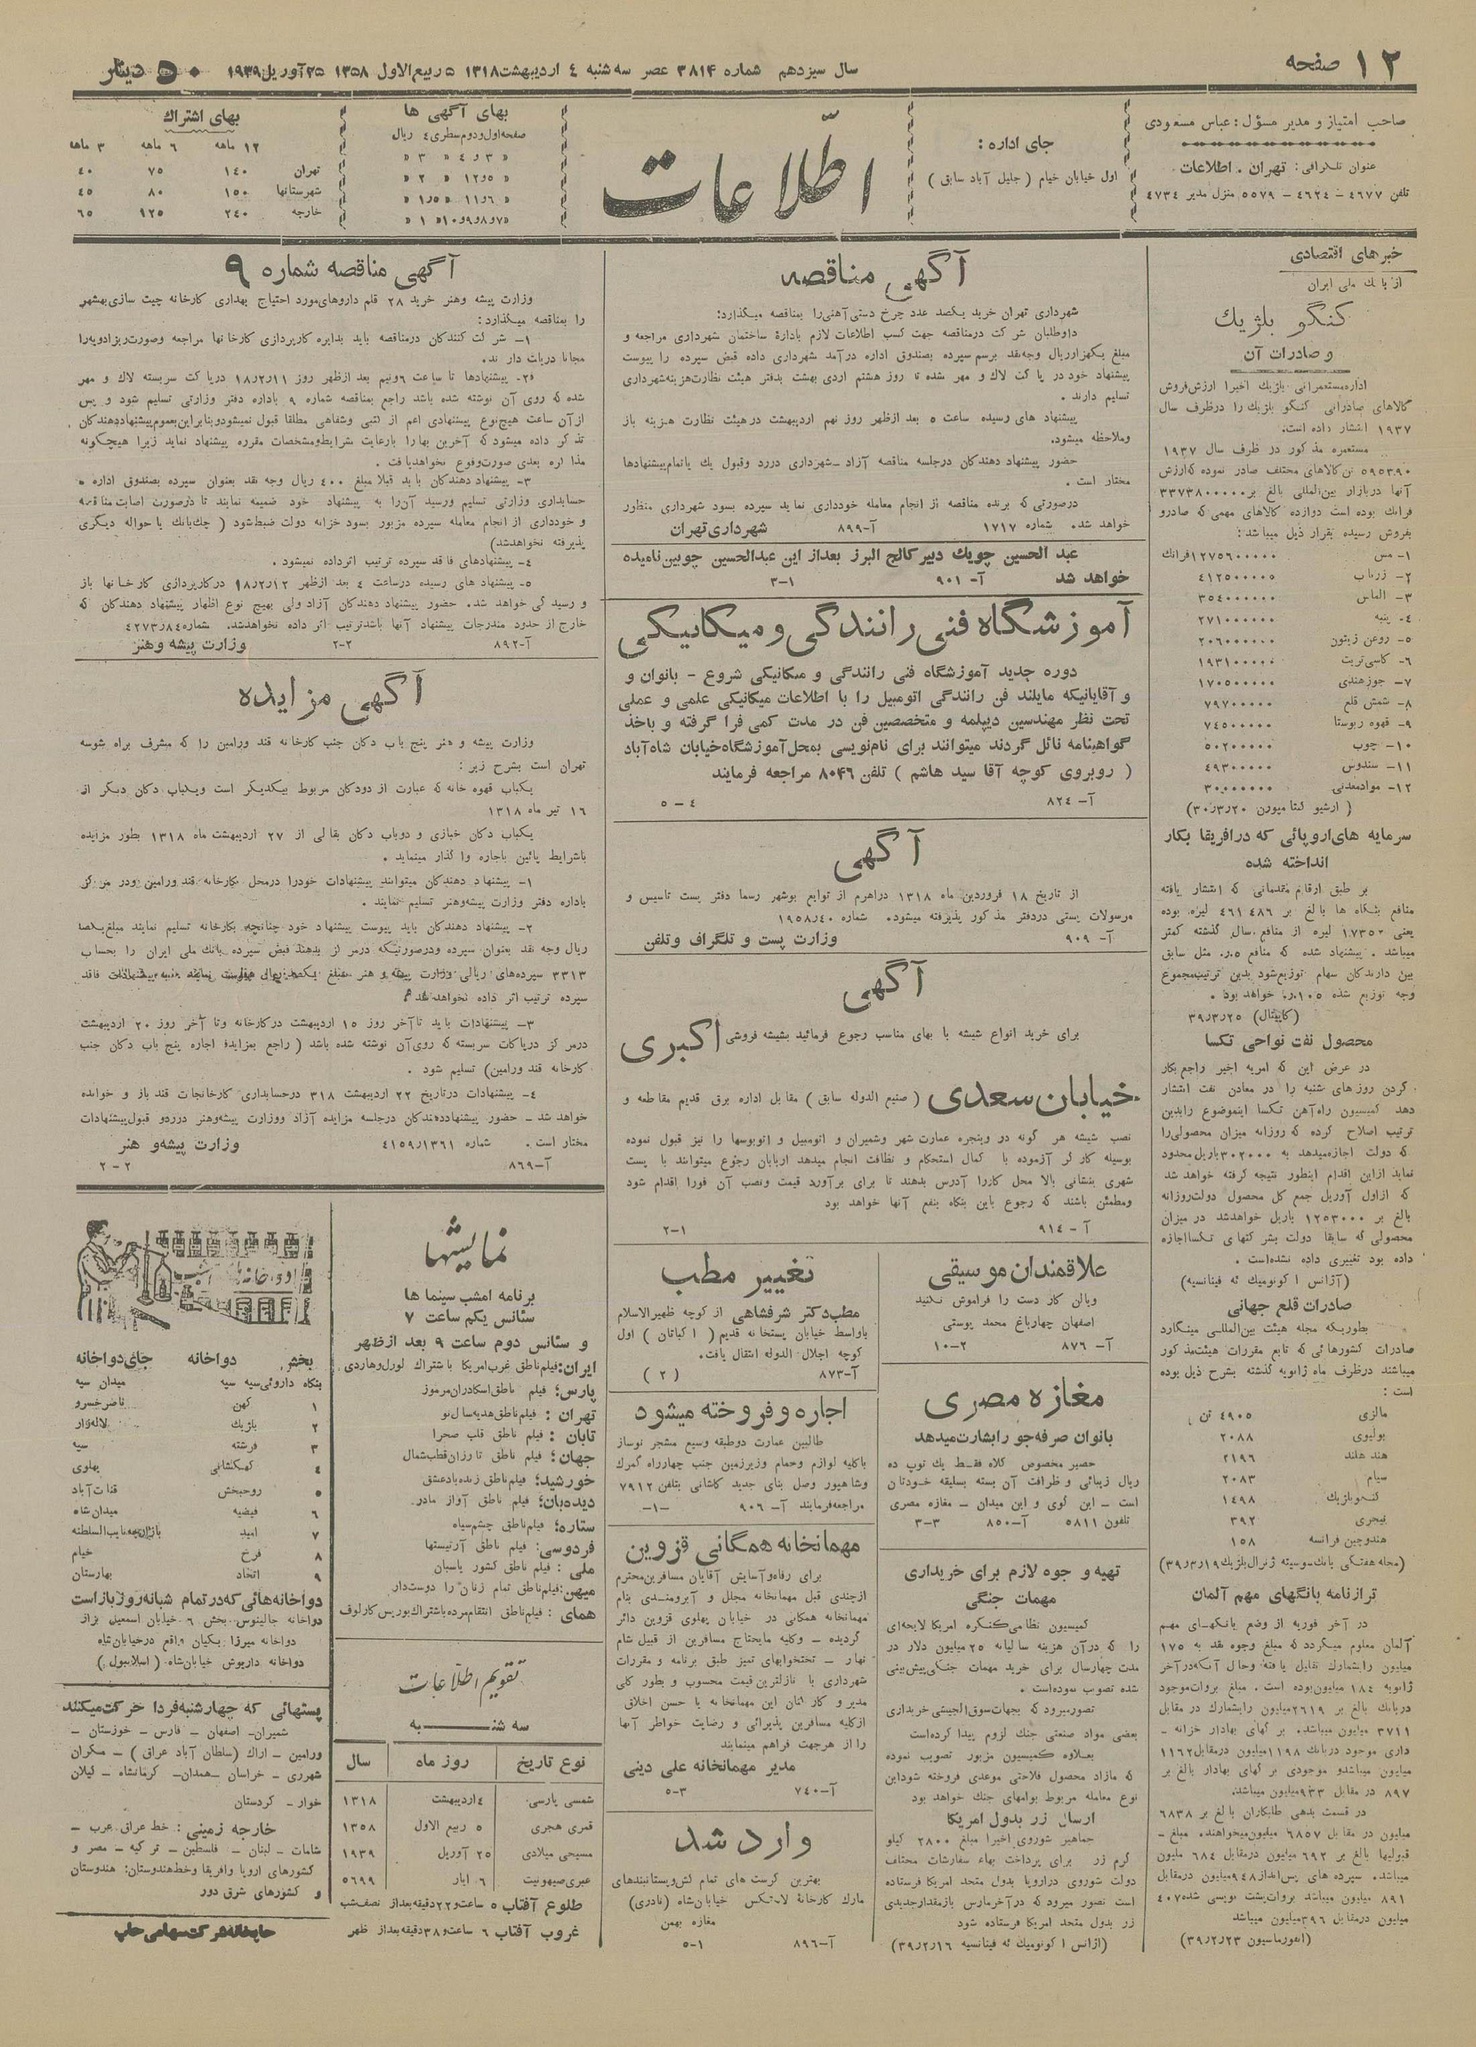 ۱۲ صفحه
سال سیزدهم شماره ۳۸۱۴ عصر سه شنبه ۴ اردیبهشت ۱۳۱۸ ۵ ربیع الاول ۱۳۵۸ ۲۵ آوریل ۱۹۳۹
۵۰ دینار
صاحب امتیاز و مدیر مسؤل: عباس مسعودی
عنوان تلگرافی: تهران . اطلاعات
تلفن ۴۶۷۷ - ۴۶۲۴ - ۵۵۷۹ منزل مدیر ۴۷۳۴
جای اداره :
اول خیابان خیام ( جلیل آباد سابق )
اطّلاعات
بهای آگهی ها
صفحه اول و دوم سطری ۴ ریال
بهای اشتراك
۱۲ ماهه ۶ ماهه ۳ ماهه
تهران ۱۴۰ ۷۵ ۴۰
شهرستانها ۱۵۰ ۸۰ ۴۵
خارجه ۲۴۰ ۱۲۵ ۶۵
خبرهای اقتصادی
از بانك ملی ایران
کنگو بلژیك
و صادرات آن
اداره مستعمراتی بلژیك اخیرا ارزش فروش
کالاهای صادراتی کنگو بلژیك را در ظرف سال
۱۹۳۷ انتشار داده است.
مستعمره مذکور در ظرف سال ۱۹۳۷
فرانك بوده است دوازده کالاهای مهمی که صادر و
بفروش رسیده بقرار ذیل میباشد :
۱- مس ۱۲۷۵۶۰۰۰۰۰ فرانك
۲- زرناب ۴۱۲۵۰۰۰۰۰
۳- الماس ۳۵۴۰۰۰۰۰۰
۴- پنبه ۲۷۱۰۰۰۰۰۰
۵- روغن زیتون ۲۰۶۰۰۰۰۰۰
۶- کاسی تریت ۱۹۳۱۰۰۰۰۰
۷- جوزهندی ۱۷۰۵۰۰۰۰۰
۸- شمش قلع ۷۹۷۰۰۰۰۰
۹- قهوه ربوستا ۷۴۵۰۰۰۰۰
۱۰- چوب ۵۰۲۰۰۰۰۰
۱۱- سندوس ۴۹۳۰۰۰۰۰
۱۲- مواد معدنی
سرمایه های اروپائی که در افریقا بکار
انداخته شده
بر طبق ارقام مقدماتی که انتشار یافته
منافع بنگاه ها بالغ بر ۴۶۱۴۸۶ لیره بوده
یعنی ۱۰۷۳۵۰ لیره از منافع سال گذشته کمتر
بین دارندگان سهام توزیع شود بدین ترتیب مجموع
(کاپیتال) ۳۹٫۳٫۲۵
محصول نفت نواحی تکسا
در عرض این که امریه اخیر راجع بکار
گردن روزهای شنبه را در معادن نفت انتشار
دهد کمیسیون راه آهن تکسا اینموضوع را بدین
ترتیب اصلاح کرده که روزانه میزان محصولی را
که دولت اجازه میدهد به ۳۰۲۰۰۰ باریل محدود
نماید از این اقدام اینطور نتیجه گرفته خواهد شد
که از اول آوریل جمع کل محصول دولت روزانه
بالغ بر ۱۲۵۳۰۰۰ باریل خواهد شد در میزان
محصولی که سابقا دولت بشرکتهای تکسا اجازه
داده بود تغییری داده نشده است.
(آژانس اکونومیك ئه فینانسیه)
صادرات قلع جهانی
بطوریکه مجله هیئت بین المللی مینگارد
صادرات کشورهائی که تابع مقررات هیئت مذکور
میباشند در ظرف ماه ژانویه گذشته بشرح ذیل بوده
است :
مالزی ۴۹۰۵ تن
بولیوی ۲۰۸۸
هند هلند ۲۱۹۶
سیام ۲۰۸۳
کنگو بلژیك ۱۴۹۸
نیجری ۳۹۲
هندوچین فرانسه ۱۵۸
(مجله هفتگی بانك سوسیته ژنرال بلژیك ۳۹٫۳٫۱۹)
ترازنامه بانگهای مهم آلمان
در آخر فوریه از وضع بانکهای مهم
آلمان معلوم میگردد که مبلغ وجوه نقد به ۱۷۵
میلیون رایشمارك تقلیل یافته و حال آنکه در آخر
ژانویه ۱۸۴ میلیون بوده است . مبلغ بروات موجود
در بانك بالغ بر ۲۶۱۹ میلیون رایشمارك در مقابل
۳۷۱۱ میلیون میباشد. بر گهای بهادار خزانه -
داری موجود در بانك ۱۱۹۸ میلیون در مقابل ۱۱۶۲
میلیون میباشد و موجودی بر گهای بهادار بالغ بر
۸۹۷ در مقابل ۹۳۳ میلیون میباشد.
در قسمت بدهی طلبکاران بالغ بر ۶۸۳۸
میلیون در مقابل ۶۸۵۷ میلیون میخواهند. مبلغ -
قبولیها بالغ بر ۶۹۲ میلیون در مقابل ۶۸۴ ملیون
میباشد. سپرده های پس انداز ۹۴۸ میلیون در مقابل
۸۹۱ میلیون میباشد بروات پشت نویسی شده ۴۰۷
میلیون در مقابل ۳۹۶ میلیون میباشد
(انفورماسیون ۳۹٫۲٫۲۳)
آگهی مناقصه
شهرداری تهران خرید یکصد عدد چرخ دستی آهنی را بمناقصه میگذارد:
داوطلبان شرکت در مناقصه جهت کسب اطلاعات لازم باداره ساختمان شهرداری مراجعه و
مبلغ یکهزار ریال وجه نقد برسم سپرده بصندوق اداره درآمد شهرداری داده قبض سپرده را پیوست
پیشنهاد خود در پاکت لاك و مهر شده تا روز هشتم اردی بهشت بدفتر هیئت نظارت هزینه شهرداری
تسلیم دارند .
پیشنهاد های رسیده ساعت ۵ بعد از ظهر روز نهم اردیبهشت در هیئت نظارت هزینه باز
و ملاحظه میشود.
حضور پیشنهاد دهندگان در جلسه مناقصه آزاد - شهرداری در رد و قبول یك یا تمام پیشنهادها
مختار است .
در صورتی که برنده مناقصه از انجام معامله خودداری نماید سپرده بسود شهرداری منظور
خواهد شد. شماره ۱۷۱۷ آ-۸۹۹ شهرداری تهران
عبد الحسین چوبك دبیر کالج البرز بعد از این عبدالحسین چوبین نامیده
خواهد شد آ- ۹۰۱ ۱-۳
آموزشگاه فنی رانندگی و میکانیکی
دوره جدید آموزشگاه فنی رانندگی و میکانیکی شروع - بانوان و
و آقایانیکه مایلند فن رانندگی اتومبیل را با اطلاعات میکانیکی علمی و عملی
تحت نظر مهندسین دیپلمه و متخصصین فن در مدت کمی فرا گرفته و باخذ
گواهینامه نائل گردند میتوانند برای نام نویسی بمحل آموزشگاه خیابان شاه آباد
( روبروی کوچه آقا سید هاشم ) تلفن ۸۰۴۶ مراجعه فرمایند
آ- ۸۲۴ ۴ - ۵
آگهی
از تاریخ ۱۸ فروردین ماه ۱۳۱۸ در اهرم از توابع بوشهر رسما دفتر پست تاسیس و
مرسولات پستی در دفتر مذکور پذیرفته میشود. شماره ۱۹۵۸٫۴۰
آ- ۹۰۹ وزارت پست و تلگراف و تلفن
آگهی
برای خرید انواع شیشه با بهای مناسب رجوع فرمائید بشیشه فروشی اکبری
خیابان سعدی ( صنیع الدوله سابق ) مقابل اداره برق قدیم مقاطعه و
نصب شیشه هر گونه در و پنجره عمارت شهر و شمیران و اتومبیل و اتوبوسها را نیز قبول نموده
بوسیله کارگر آزموده با کمال استحکام و نظافت انجام میدهد اربابان رجوع میتوانند با پست
شهری بنشانی بالا محل کار را آدرس بدهند تا برای برآورد قیمت و نصب آن فورا اقدام شود
و مطمئن باشند که رجوع باین بنگاه بنفع آنها خواهد بود
آ - ۹۱۴ ۱-۲
علاقمندان موسیقی
ویالن کار دست را فراموش نکنید
اصفهان چهارباغ محمد یوستی
آ- ۸۷۶ ۲-۱۰
مغازه مصری
بانوان صرفه جو را بشارت میدهد
حصیر مخصوص کلاه فقط یك توپ ده
ریال زیبائی و ظرافت آن بسته بسلیقه خودتان
است - این گوی و این میدان - مغازه مصری
تلفون ۵۸۱۱ آ-۸۵۰ ۳-۳
تهیه و جوه لازم برای خریداری
مهمات جنگی
کمیسیون نظامی کنگره امریکا لایحه ای
را که در آن هزینه سالیانه ۲۵ میلیون دلار در
مدت چهارسال برای خرید مهمات جنگی پیش بینی
شده تصویب نموده است .
تصور میرود که بجهات سوق الجیشی خریداری
بعضی مواد صنعتی جنك لزوم پیدا کرده است
بعلاوه کمیسیون مزبور تصویب نموده
که مازاد محصول فلاحتی موعدی فروخته شود این
نوع معامله مربوط بوامهای جنك خواهد بود
ارسال زر بدول امریکا
جماهیر شوروی اخیرا مبلغ ۲۸۰۰ کیلو
گرم زر برای پرداخت بهاء سفارشات مختلف
دولت شوروی در اروپا بدول متحد امریکا فرستاده
است تصور میرود که در آخر مارس باز مقدار جدیدی
زر بدول متحد امریکا فرستاده شود
(آژانس اکونومیك ئه فینانسیه ۳۹٫۲٫۱۶)
تغییر مطب
مطب دکتر شرفشاهی از کوچه ظهیرالاسلام
باواسط خیابان پستخانه قدیم ( اکباتان ) اول
کوچه اجلال الدوله انتقال یافت.
آ-۸۷۳ ( ۲ )
اجاره و فروخته میشود
طالبین عمارت دوطبقه وسیع مشجر نوساز
باکلیه لوازم و حمام و زیرزمین جنب چهارراه گمرك
و شاهپور وصل بنای جدید کاشانی بتلفن ۷۹۱۲
مراجعه فرمایند آ- ۹۰۶ -۱-
مهمانخانه همگانی قزوین
برای رفاه و آسایش آقایان مسافرین محترم
از چندی قبل مهمانخانه مجلل و آبرومندی بنام
مهمانخانه همگانی در خیابان پهلوی قزوین دائر
گردیده - و کلیه مایحتاج مسافرین از قبیل شام
نهار - تختخوابهای تمیز طبق برنامه و مقررات
شهرداری با نازلترین قیمت محسوب و بطور کلی
مدیر و کارکنان این مهمانخانه با حسن اخلاق
از کلیه مسافرین پذیرائی و رضایت خواطر آنها
را از هرجهت فراهم مینمایند
مدیر مهمانخانه علی دینی
آ-۷۴۰ ۳-۵
وارد شد
بهترین کرست های تمام کش و پستانبندهای
مارك کارخانهٔ لاستکس خیابان شاه (نادری)
مغازه بهمن
آ-۸۹۶ ۱-۵
آگهی مناقصه شماره ۹
وزارت پیشه و هنر خرید ۲۸ قلم داروهای مورد احتیاج بهداری کارخانه چیت سازی بهشهر
را بمناقصه میگذارد:
۱- شرکت کنندگان در مناقصه باید بدایره کارپردازی کارخانها مراجعه و صورت ریز ادویه را
مجانا دریافت دارند.
۲- پیشنهادها تا ساعت ۶ ونیم بعد از ظهر روز ۱۸٫۲٫۱۱ در پاکت سربسته لاك و مهر
شده که روی آن نوشته شده باشد راجع بمناقصه شماره ۹ باداره دفتر وزارتی تسلیم شود و پس
از آن ساعت هیچ نوع پیشنهادی اعم از کتبی و شفاهی مطلقا قبول نمیشود و بنابر این بعموم پیشنهاد دهندگان
تذکر داده میشود که آخرین بها را با رعایت شرایط و مشخصات مقرره پیشنهاد نماید زیرا هیچگونه
مذاکره بعدی صورت وقوع نخواهد یافت .
۳- پیشنهاد دهندگان باید قبلا مبلغ ۴۰۰ ریال وجه نقد بعنوان سپرده بصندوق اداره
حسابداری وزارتی تسلیم و رسید آن را به پیشنهاد خود ضمیمه نمایند تا در صورت اصابت مناقصه
و خودداری از انجام معامله سپرده مزبور بسود خزانه دولت ضبط شود ( چك بانك یا حواله دیگری
پذیرفته نخواهد شد)
۴- پیشنهادهای فاقد سپرده ترتیب اثر داده نمیشود.
۵- پیشنهاد های رسیده در ساعت ۴ بعد از ظهر ۱۸٫۲٫۱۲ در کارپردازی کارخانها باز
و رسیدگی خواهد شد. حضور پیشنهاد دهندگان آزاد ولی بهیچ نوع اظهار پیشنهاد دهندگان که
خارج از حدود مندرجات پیشنهاد آنها باشد ترتیب اثر داده نخواهد شد. شماره ۴۲۷۳٫۸۴
آ-۸۹۲ ۲-۲ وزارت پیشه و هنر
آگهی مزایده
وزارت پیشه و هنر پنج باب دکان جنب کارخانه قند ورامین را که مشرف براه شوسه
تهران است بشرح زیر :
یکباب قهوه خانه که عبارت از دو دکان مربوط بیکدیگر است و یکباب دکان دیگر از
۱۶ تیر ماه ۱۳۱۸
یکباب دکان خبازی و دوباب دکان بقالی از ۲۷ اردیبهشت ماه ۱۳۱۸ بطور مزایده
باشرایط پائین باجاره واگذار مینماید .
۱- پیشنهاد دهندگان میتوانند پیشنهادات خود را در محل بکارخانه قند ورامین و در مرکز
باداره دفتر وزارت پیشه و هنر تسلیم نمایند .
۲- پیشنهاد دهندگان باید پیوست پیشنهاد خود چنانچه بکارخانه تسلیم نمایند مبلغ یکصد
ریال وجه نقد بعنوان سپرده و در صورتیکه در مرکز بدهند قبض سپرده بانك ملی ایران را بحساب
سپرده ترتیب اثر داده نخواهد شد
۳- پیشنهادات باید تا آخر روز ۱۵ اردیبهشت در کارخانه و تا آخر روز ۲۰ اردیبهشت
در مرکز در پاکات سربسته که روی آن نوشته شده باشد ( راجع بمزایده اجاره پنج باب دکان جنب
کارخانه قند ورامین) تسلیم شود .
۴- پیشنهادات در تاریخ ۲۲ اردیبهشت ۳۱۸ در حسابداری کارخانجات قند باز و خوانده
خواهد شد - حضور پیشنهاد دهندگان در جلسه مزایده آزاد و وزارت پیشه و هنر در رد و قبول پیشنهادات
مختار است . شماره ۴۱۵۹٫۱۳۶۱ وزارت پیشه و هنر
آ-۸۶۹ ۲-۲
نمایشها
برنامه امشب سینما ها
سئانس یکم ساعت ۷
و سئانس دوم ساعت ۹ بعد از ظهر
ایران: فیلم ناطق غرب امریکا با شتراك لورل و هاردی
پارس: فیلم ناطق اسکادران مرموز
تهران : فیلم ناطق هدیه سال نو
تابان : فیلم ناطق قلب صحرا
جهان: فیلم ناطق تارزان قطب شمال
خورشید: فیلم ناطق زنده باد عشق
دیده بان: فیلم ناطق آواز مادر
ستاره: فیلم ناطق چشم سیاه
فردوسی: فیلم ناطق آرتیستها
ملی : فیلم ناطق کشور پاسبان
میهن: فیلم ناطق تمام زنان را دوست دار
همای : فیلم ناطق انتقام مرده باشتراك بوریس کارلوف
تقویم اطلاعات
سه شنبه
نوع تاریخ روز ماه سال
شمسی پارسی ۴ اردیبهشت ۱۳۱۸
قمری هجری ۵ ربیع الاول ۱۳۵۸
مسیحی میلادی ۲۵ آوریل ۱۹۳۹
عبری صیهونیت ۶ ایار ۵۶۹۹
طلوع آفتاب ۵ ساعت و ۲۲ دقیقه بعد از نصف شب
غروب آفتاب ۶ ساعت و ۳۸ دقیقه بعد از ظهر
دواخانه های امشب
بخش دواخانه جای دواخانه
بنگاه داروئی سپه سپه میدان سپه
۱ کهن ناصر خسرو
۲ بلژیك لاله زار
۳ فرشته سپه
۴ کهکشانی پهلوی
۵ روحبخش قنات آباد
۶ فیضیه میدان شاه
۷ امید بازارچه نایب السلطنه
۸ فرخ خیام
۹ اتحاد بهارستان
دواخانه هائی که در تمام شبانه روز باز است
دواخانه جالینوس بخش ۶ خیابان اسمعیل بزاز
دواخانه میرزا بکیان واقع در خیابان شاه
دواخانه داریوش خیابان شاه ( اسلامبول )
پستهائی که چهارشنبه فردا حرکت میکنند
شمیران- اصفهان - فارس - خوزستان -
ورامین - اراك (سلطان آباد عراق ) - مکران
شهرری - خراسان - همدان- کرمانشاه - گیلان
خوار - کردستان
خارجه زمینی : خط عراق عرب -
شامات - لبنان - فلسطین - ترکیه - مصر و
کشورهای اروپا و افریقا و خط هندوستان: هندوستان
و کشورهای شرق دور
چاپخانه شرکت سهامی چاپ